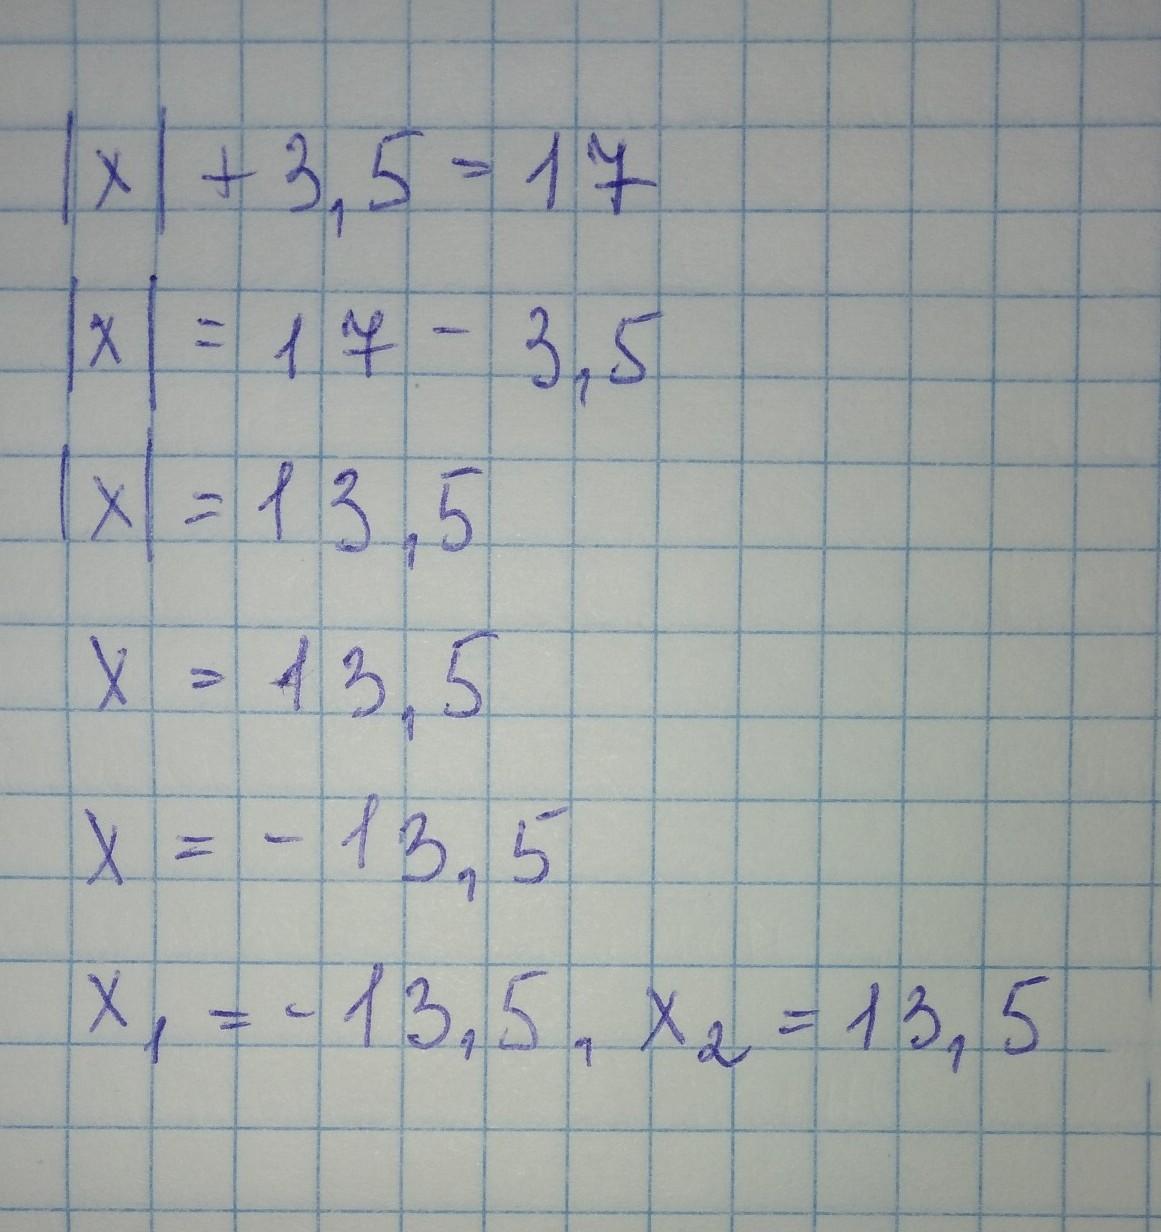 |x| + 3,5 = 17
|x| = 17 - 3,5
|x| = 13,5
x = 13,5
x = - 13,5
x₁ = - 13,5, x₂ = 13,5